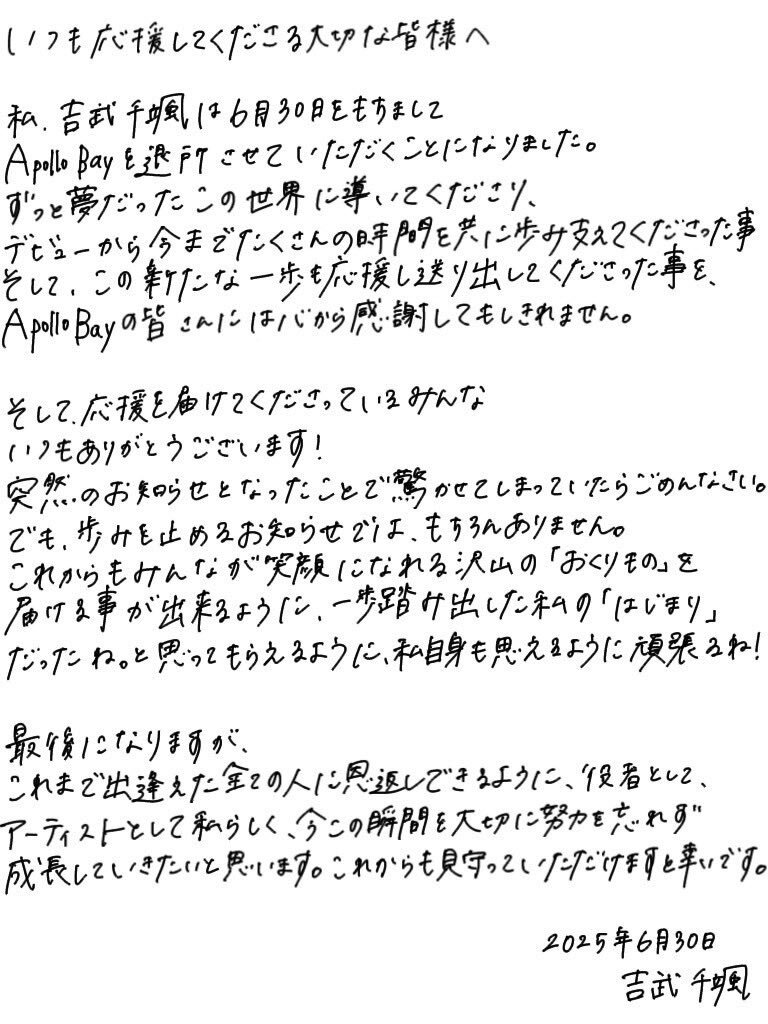 いつも応援してくださる大切な皆様へ
私、吉武千颯は6月30日をもちまして
Apollo Bayを退所させていただくことになりました。
ずっと夢だったこの世界に導いてくださり、
デビューから今までたくさんの時間を共に歩み支えてくださった事
そして、この新たな一歩も応援し送り出してくださった事を、
Apollo Bayの皆さんには心から感謝してもしきれません。
そして、応援を届けてくださっているみんな
いつもありがとうございます!
突然のお知らせとなったことで驚かせてしまっていたらごめんなさい。
でも、歩みを止めるお知らせでは、もちろんありません。
これからもみんなが笑顔になれる沢山の「おくりもの」を
届ける事が出来るように、一歩踏み出した私の「はじまり」
だったね。と思ってもらえるように、私自身も思えるように頑張るね!
最後になりますが、
これまで出逢えた全ての人に恩返しできるように、役者として、
アーティストとして私らしく、今この瞬間を大切に努力を忘れず
成長していきたいと思います。これからも見守っていただけますと幸いです。
2025年6月30日
吉武千颯